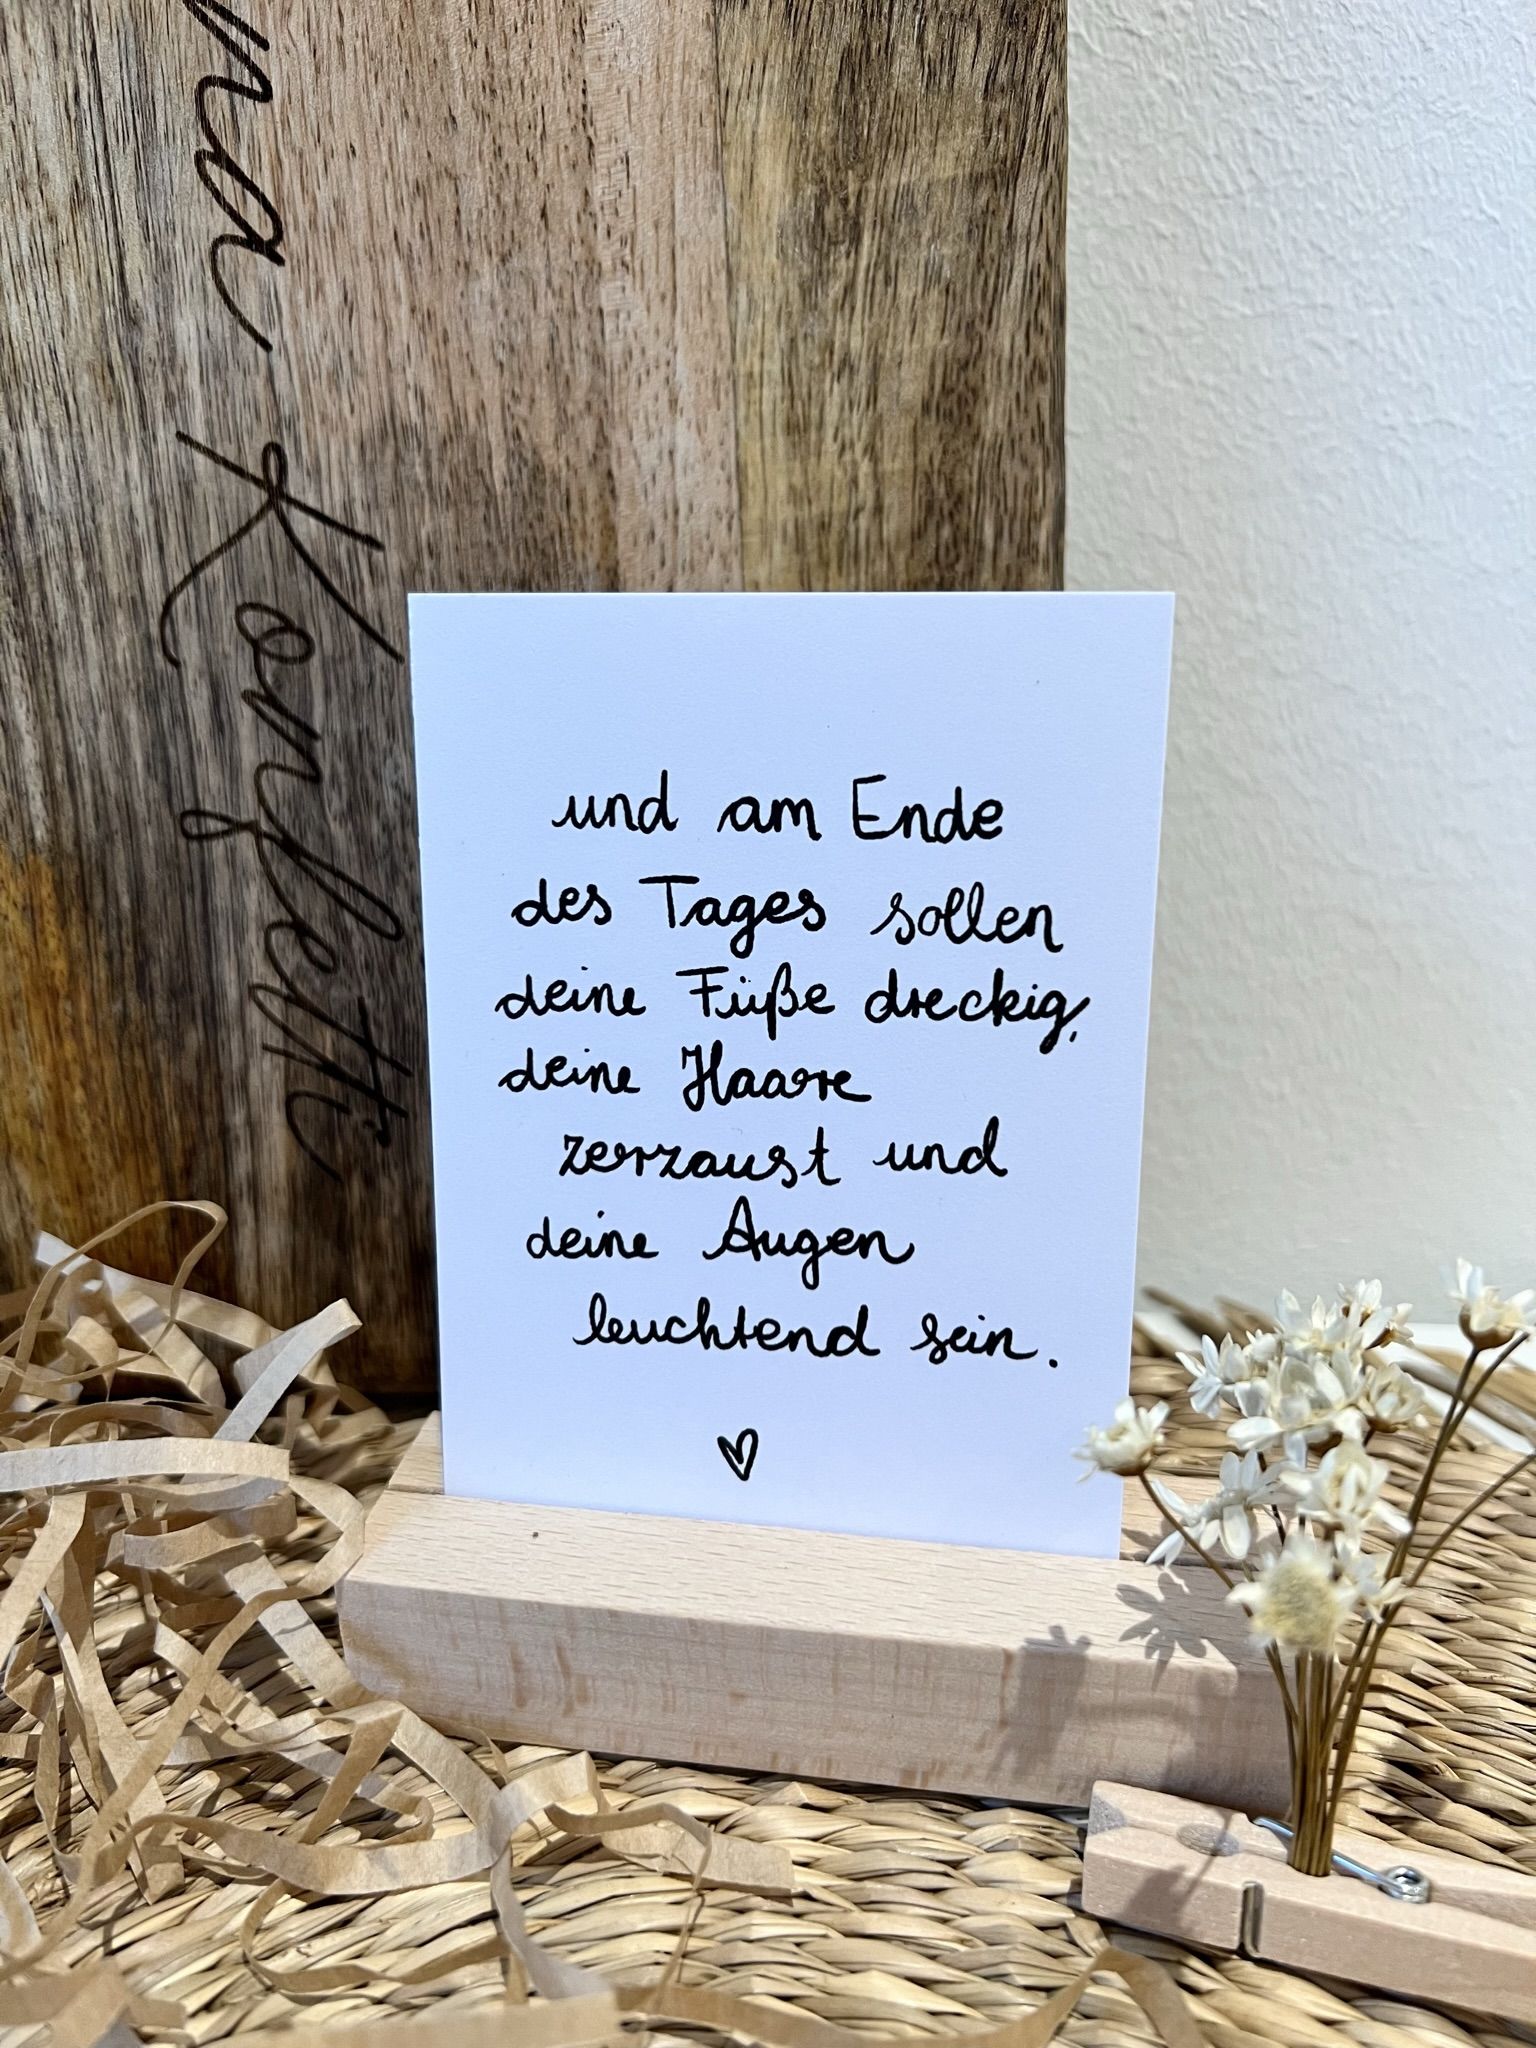 na Konfetti
und am Ende
des Tages sollen
deine Füße dreckig,
deine Haare
zerzaust und
deine Augen
leuchtend sein.